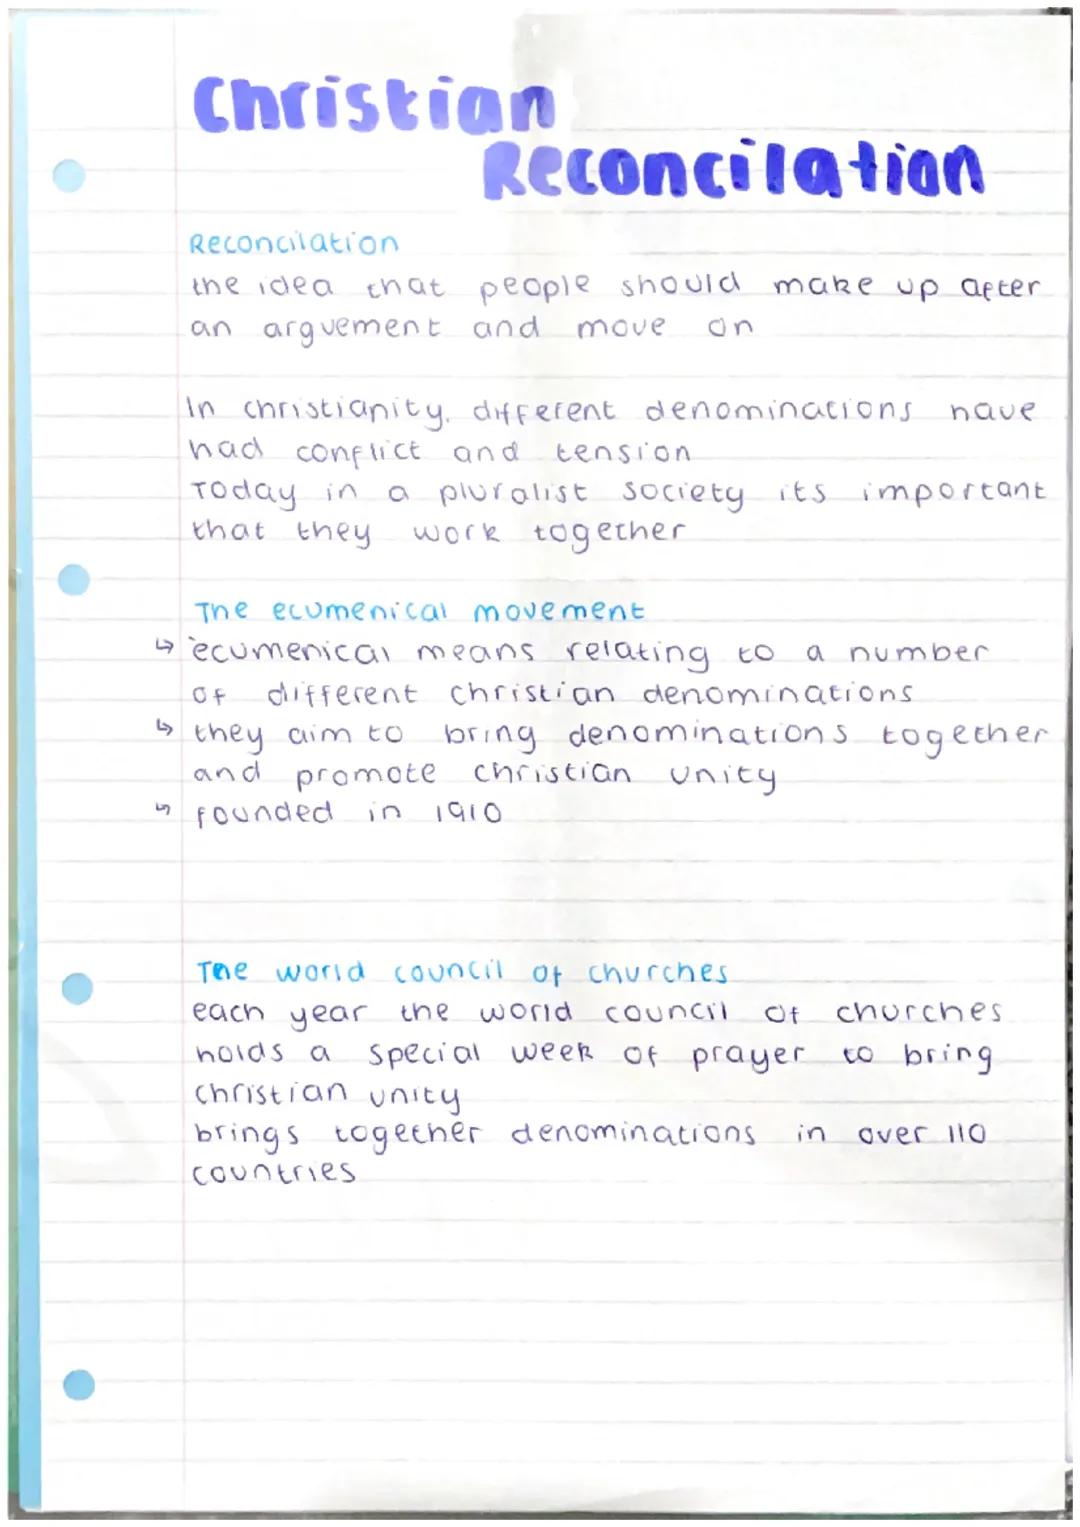 Christian
Reconcilation
Reconcilation
the idea that people should make up after
an arguement and move on
In christianity, different denominations have
had conflict and tension
Today in a pluralist society its important
that they work together
The ecumenical movement
↳ ecumenical means relating to a number
of different christian denominations
↳ they aim to bring denominations together
and promote christian unity
↳ founded in 1910
The world council of churches
each year the world council of churches
holds a special week of prayer to bring
christian unity
brings together denominations in over 110
countries